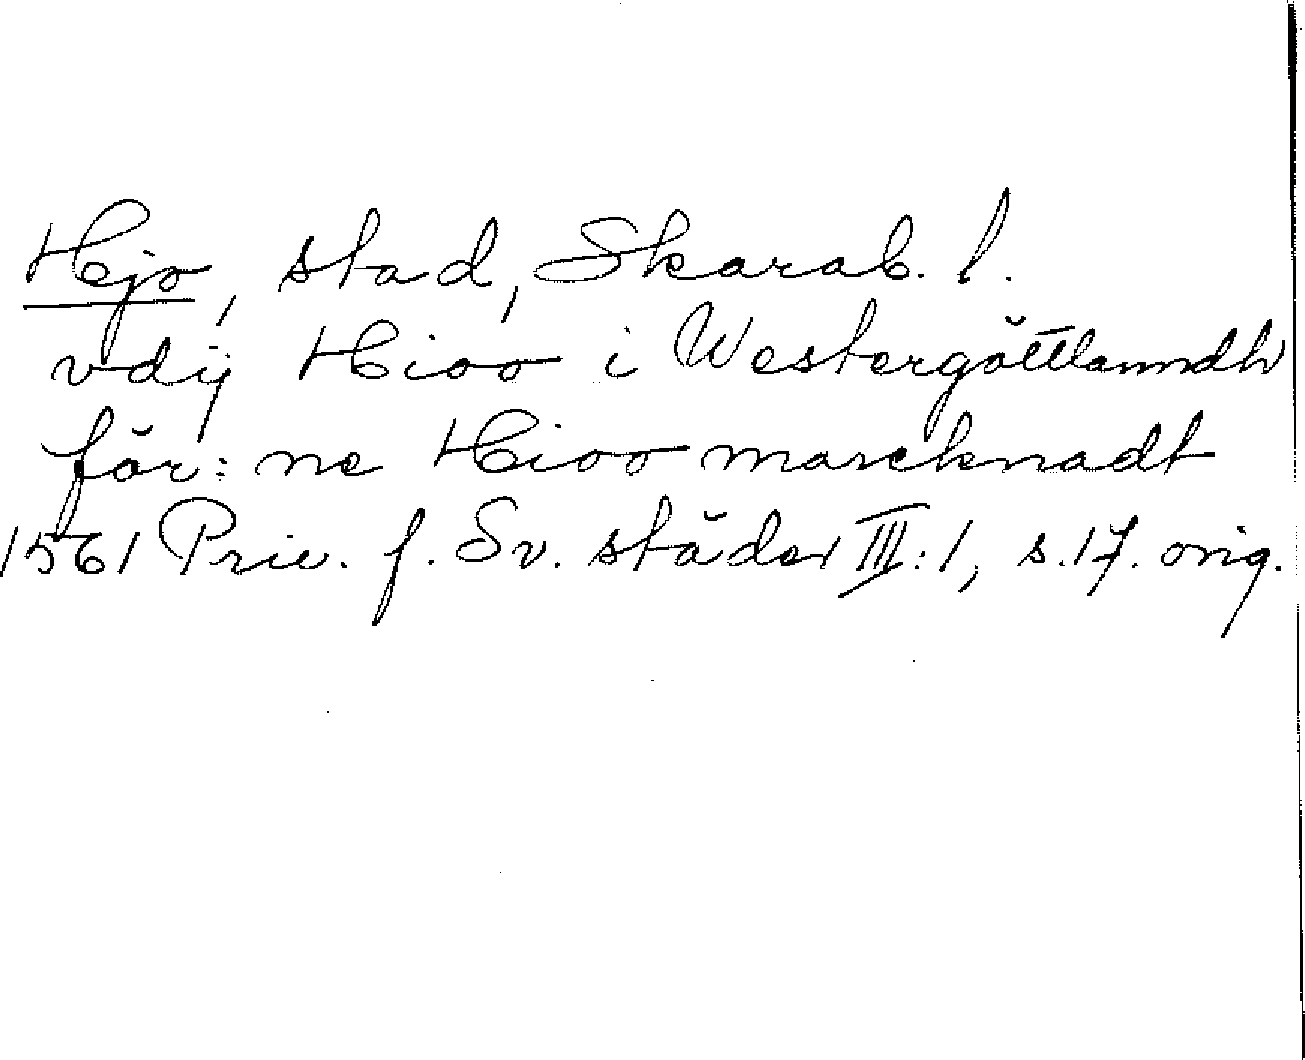 Hjo, stad, Skarab. l.
vdij Hioo i Westergöttlanndh
för: ne Hioo marcknadt
1561 Priv. f. Sv. städer III:1, s.17. orig.